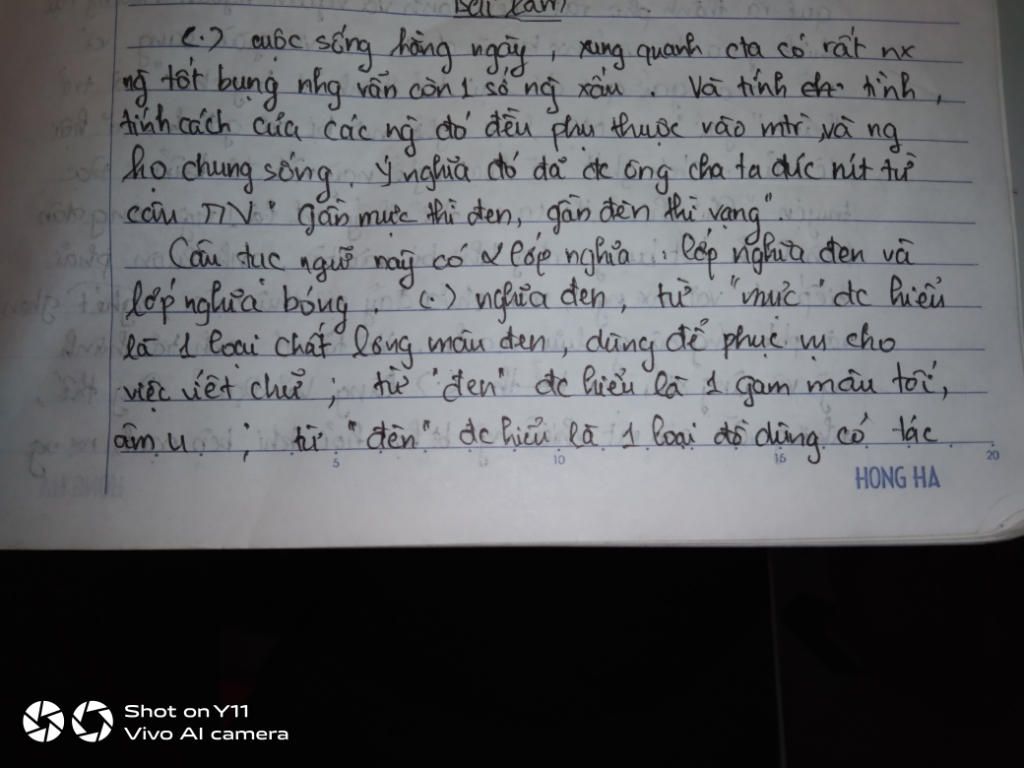 Bài Làm
(.) cuộc sống hằng ngày, xung quanh cta có rất nx
ng tốt bụng nhg vẫn còn 1 số ng xấu. Và tính tình,
tính cách của các ng đó đều phụ thuộc vào mtr và ng
họ chung sống. Ý nghĩa đó đã đc ông cha ta đúc nít từ
câu TNV "gần mực thì đen, gần đèn thì vạng".
Câu tục ngữ này có 2 lớp nghĩa: lớp nghĩa đen và
lớp nghĩa bóng. (.) nghĩa đen, từ "mực" đc hiểu
là 1 loại chất lỏng màu đen, dùng để phục vụ cho
việc viết chữ; từ "đen" đc hiểu là 1 gam màu tối,
âm u; từ "đèn" đc hiểu là 1 loại đồ dùng có tác
5 10 15 20
HONG HA
Shot on Y11
Vivo AI camera